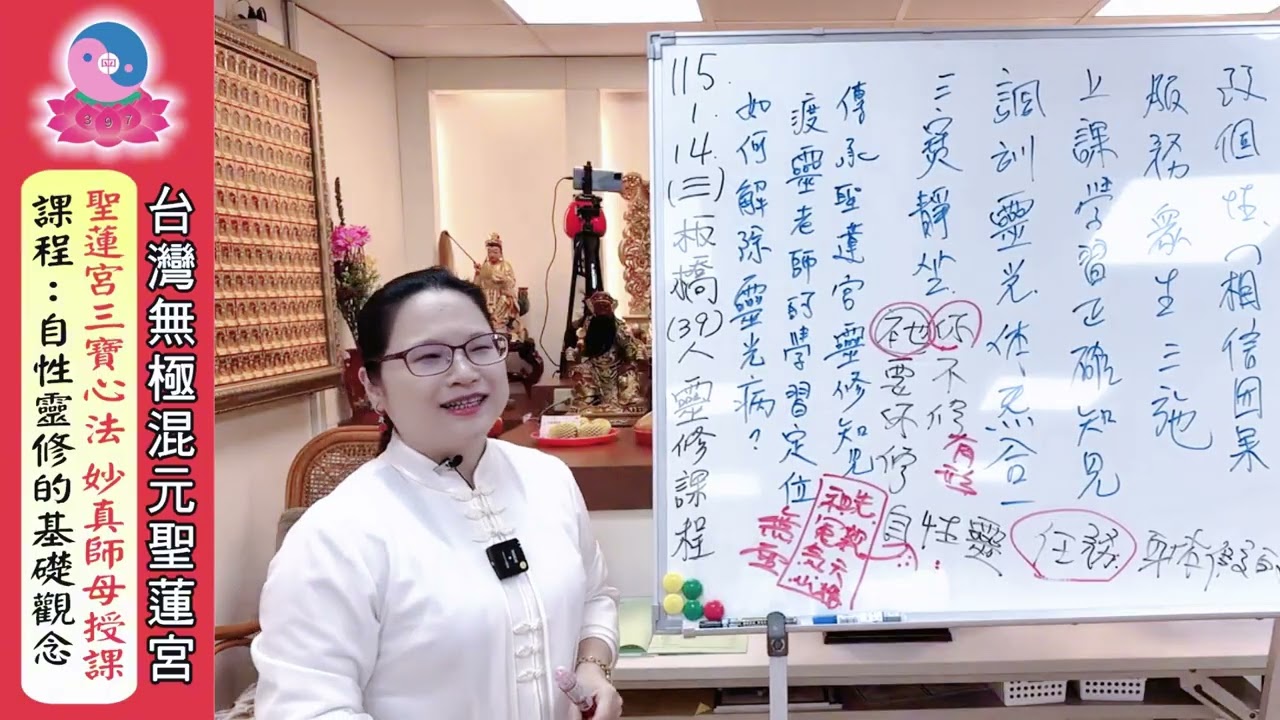 台灣無極混元聖蓮宮
聖蓮宮三寶心法 妙真師母授課
課程：自性靈修的基礎觀念
397
115.
1.
14.
(三)
板橋
(39)
人
靈修課程
如何解除靈光病？
渡靈老師的學習定位
傳承聖蓮宮靈修知見
三寶靜坐
調訓靈光体、炁合一
上課學習正確知見
服務眾生三施
改個性、相信因果
祂要你修
你不修
有形
無形
祖先
自性靈
任務